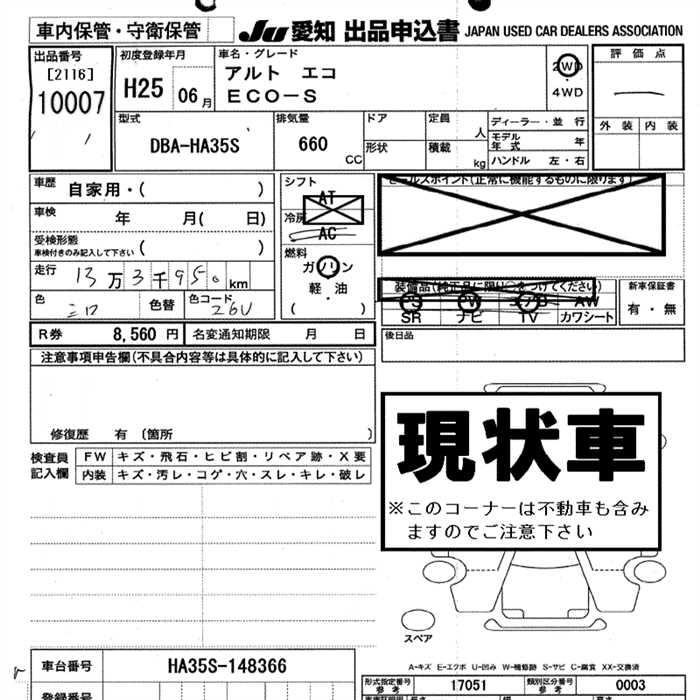 車内保管・守衛保管 JU 愛知 出品申込書 JAPAN USED CAR DEALERS ASSOCIATION
出品番号
[2116]
10007
初度登録年月
H25 06月
車名・グレード
アルト エコ
ECO-S
2WD
・
4WD
評価点
外装 内装
型式
DBA-HA35S
排気量
660 CC
ドア
形状
定員 人
積載 kg
ディーラー・並行
モデル年式 年
ハンドル 左・右
車歴 自家用・( )
車検 年 月( 日)
受検形態
車検付きのみ記入して下さい ( )
走行 13万3千950km
色 色替 色コード 26U
シフト
AT
冷房
AC
燃料
ガソリン
軽・油
( )
セールスポイント(正常に機能するものに限ります)
装備品(純正品に限り○をつけてください)
PS PW エアB AW
SR ナビ TV カワシート
新車保証書
有・無
R券 8,560円 名変通知期限 月 日
後日品
注意事項申告欄(不具合内容等は具体的に記入して下さい)
修復歴 有 〔箇所 〕
検査員記入欄
FW キズ・飛石・ヒビ割・リペア跡・X要
内装 キズ・汚レ・コゲ・穴・スレ・キレ・破レ
現状車
※このコーナーは不動車も含み
ますのでご注意下さい
スペア
A-キズ E-エクボ U-凹み W-補修跡 S-サビ C-腐食 XX-交換済
車台番号 HA35S-148366
形式指定番号
参考
17051
類別区分番号
参考
0003
登録番号